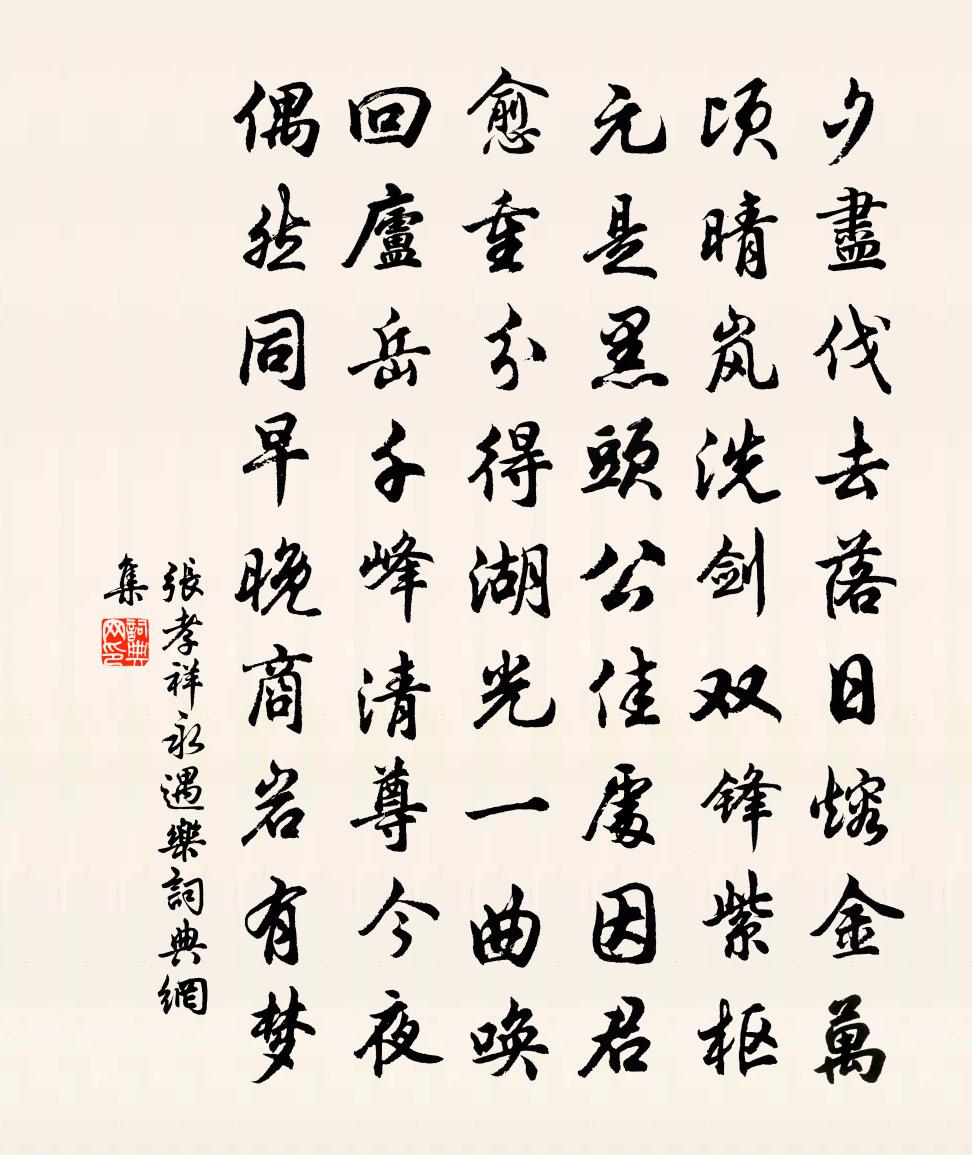 夕盡伐去落日熔金萬
頃晴岚洗剑双锋紫枢
元是黑頭公佳處因君
愈重分得湖光一曲唤
回廬岳千峰清尊今夜
偶然同早晚商岩有梦
張孝祥永遇樂詞典網
集
詞典
网印